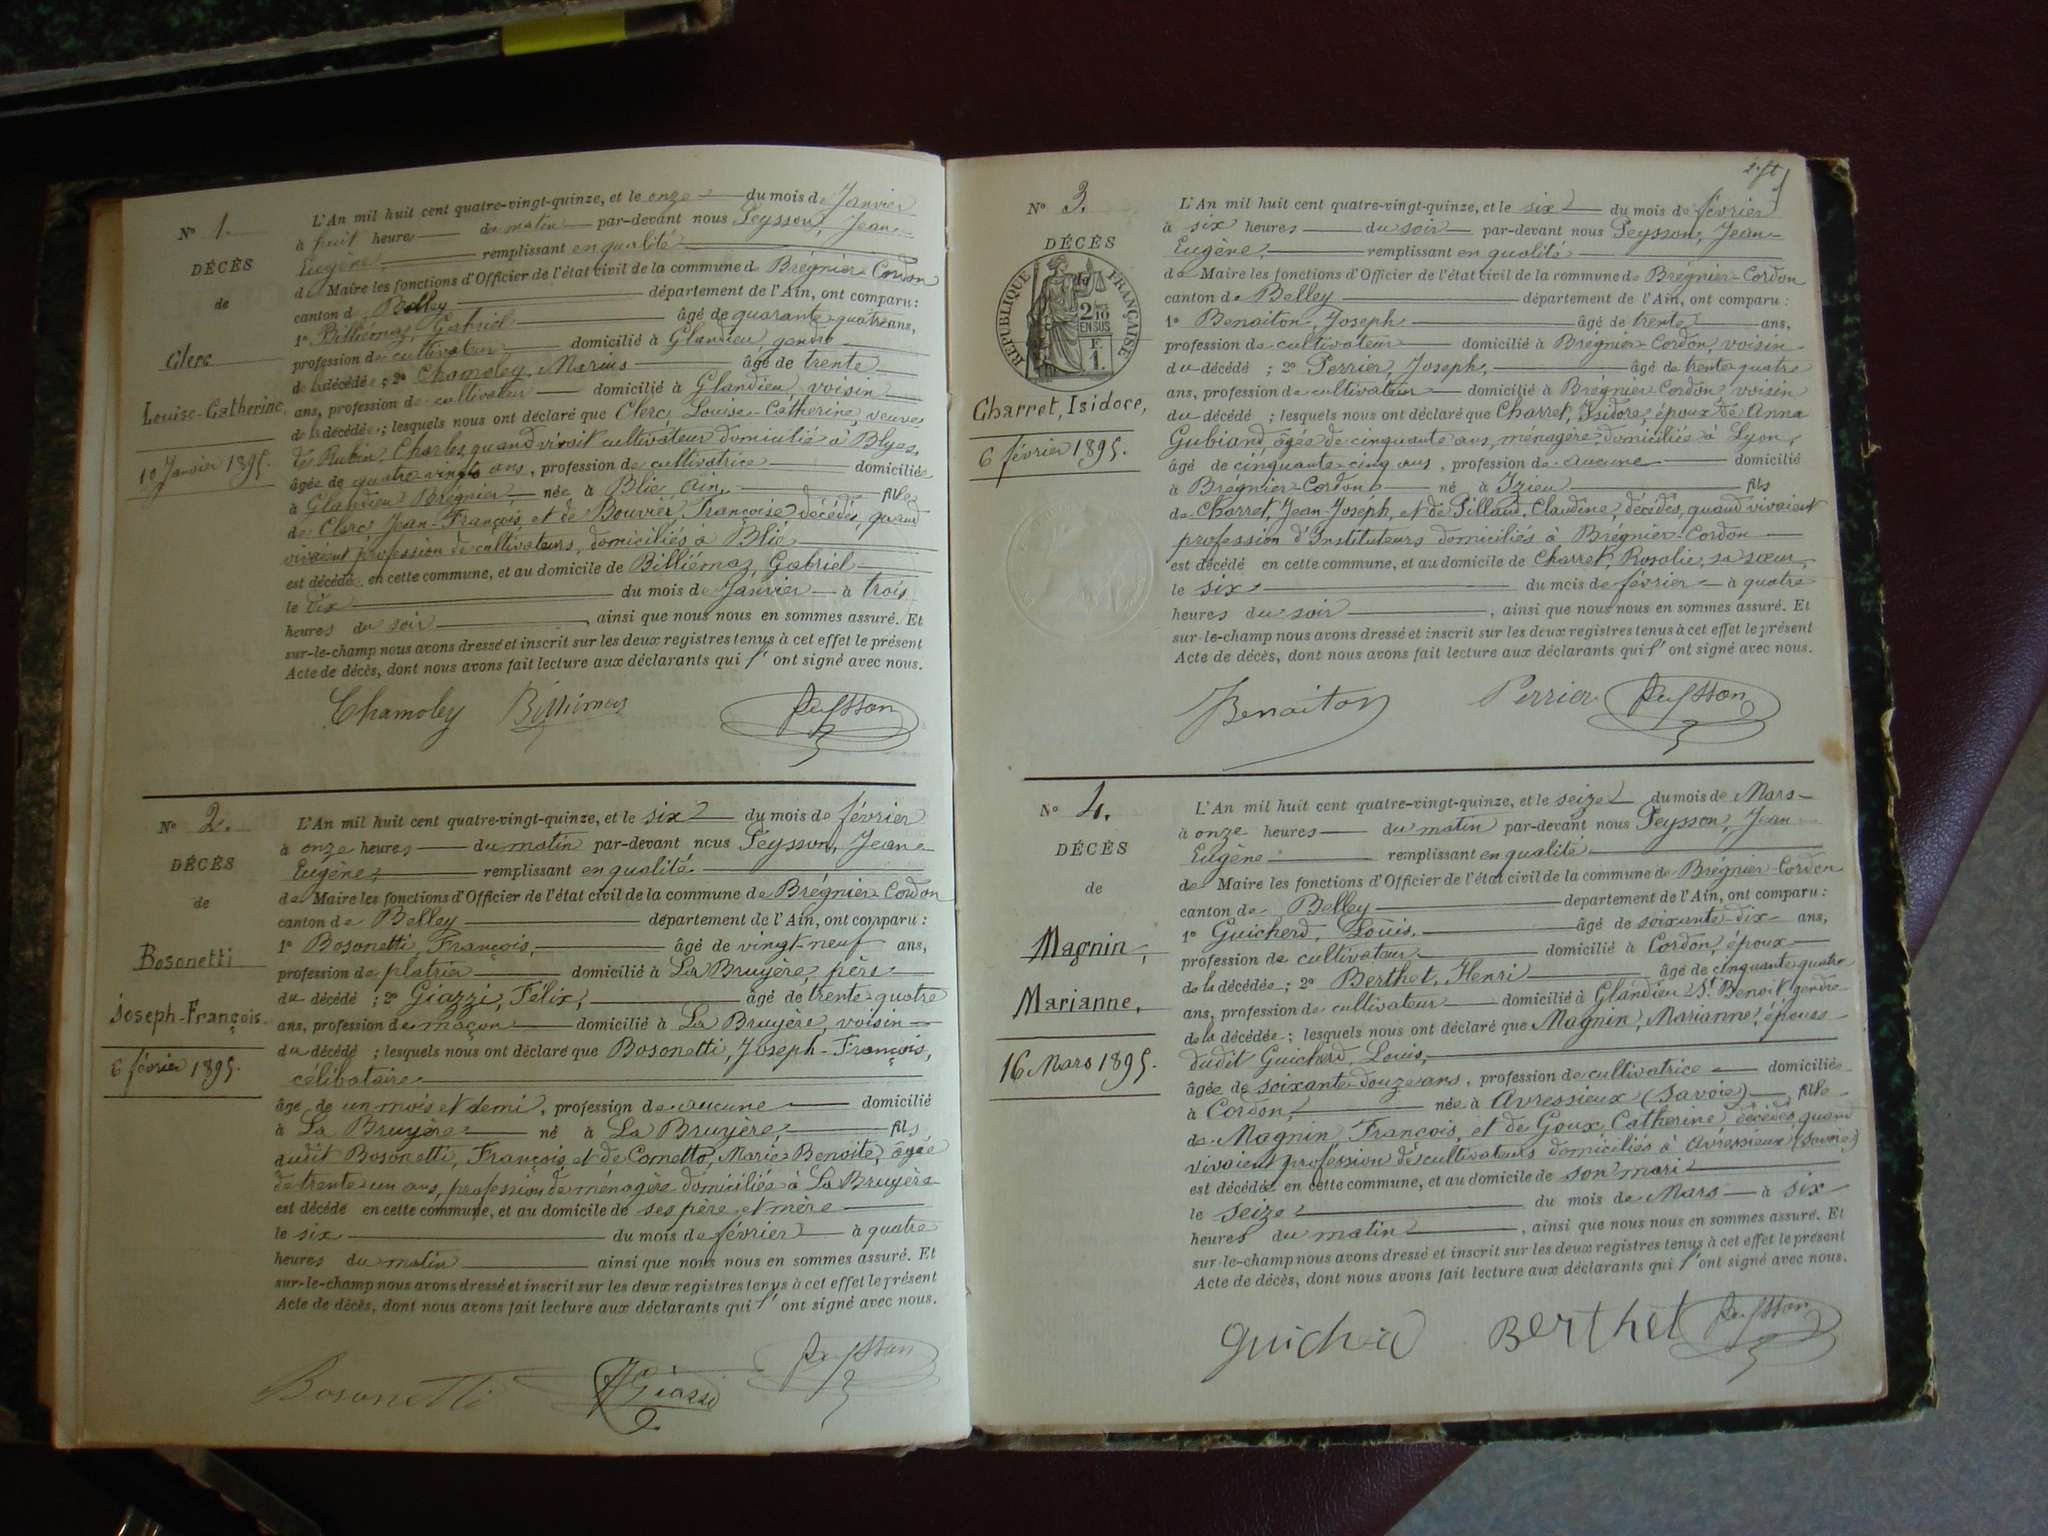 N° 1.
DÉCÈS
de
Clerc
Louise-Catherine,
10 Janvier 1895.
L'An mil huit cent quatre-vingt-quinze, et le onze du mois de Janvier
à huit heures du matin par-devant nous Peysson, Jean-
Eugène, remplissant en qualité
de Maire les fonctions d'Officier de l'état civil de la commune de Brégnier-Cordon
canton de Belley département de l'Ain, ont comparu :
1° Billiémaz, Gabriel âgé de quarante-quatre ans,
profession de cultivateur domicilié à Glandieu, gendre
de la décédée ; 2° Chamoley, Marius âgé de trente
ans, profession de cultivateur domicilié à Glandieu, voisin
de la décédée ; lesquels nous ont déclaré que Clerc, Louise-Catherine, veuve
de Rubin, Charles, quand vivait cultivateur domicilié à Blyes,
âgée de quatre vingts ans, profession de cultivatrice domiciliée
à Glandieu Brégnier née à Blie, Ain, fille
de Clerc Jean-François, et de Bouvier, Françoise décédés, quand
vivaient profession de cultivateurs, domiciliés à Blié
est décédée en cette commune, et au domicile de Billiémaz, Gabriel
le dix du mois de Janvier à trois
heures du soir, ainsi que nous nous en sommes assuré. Et
sur-le-champ nous avons dressé et inscrit sur les deux registres tenus à cet effet le présent
Acte de décès, dont nous avons fait lecture aux déclarants qui l'ont signé avec nous.
Chamoley Billiémaz Peysson
N° 2.
DÉCÈS
de
Bosonetti
Joseph-François
6 février 1895.
L'An mil huit cent quatre-vingt-quinze, et le six du mois de février
à onze heures du matin par-devant nous Peysson, Jean-
Eugène, remplissant en qualité
de Maire les fonctions d'Officier de l'état civil de la commune de Brégnier-Cordon
canton de Belley département de l'Ain, ont comparu :
1° Bosonetti, François, âgé de vingt-neuf ans,
profession de platrier domicilié à La Bruyère, père
du décédé ; 2° Giazzi, Félix, âgé de trente-quatre
ans, profession de maçon domicilié à La Bruyère, voisin
du décédé ; lesquels nous ont déclaré que Bosonetti, Joseph-François,
célibataire
âgé de un mois et demi, profession de aucune domicilié
à La Bruyère né à La Bruyère, fils
dudit Bosonetti, François et de Cometto, Marie Benoite, âgée
de trente un ans, profession de ménagère domiciliés à La Bruyère
est décédé en cette commune, et au domicile de ses père et mère
le six du mois de février à quatre
heures du matin ainsi que nous nous en sommes assuré. Et
sur-le-champ nous avons dressé et inscrit sur les deux registres tenus à cet effet le présent
Acte de décès, dont nous avons fait lecture aux déclarants qui l'ont signé avec nous.
Bosonetti Giazzi Peysson
N° 3.
DÉCÈS
de
RÉPUBLIQUE FRANÇAISE
2/10
EN SUS
F.
1.
Charret, Isidore,
6 février 1895.
L'An mil huit cent quatre-vingt-quinze, et le six du mois de février
à six heures du soir par-devant nous Peysson, Jean-
Eugène, remplissant en qualité
de Maire les fonctions d'Officier de l'état civil de la commune de Brégnier-Cordon
canton de Belley département de l'Ain, ont comparu :
1° Benoiton, Joseph âgé de trente ans,
profession de cultivateur domicilié à Brégnier-Cordon, voisin
du décédé ; 2° Perrier, Joseph, âgé de trente quatre
ans, profession de cultivateur domicilié à Brégnier Cordon, voisin
du décédé ; lesquels nous ont déclaré que Charret, Isidore, époux de Anna
Gubiand, âgée de cinquante ans, ménagère domiciliée à Lyon,
âgé de cinquante-cinq ans, profession de aucune domicilié
à Brégnier-Cordon né à Izieu fils
de Charret, Jean-Joséph, et de Pillaud, Claudine, décédés, quand vivaient
profession d'Instituteurs domiciliés à Brégnier-Cordon
est décédé en cette commune, et au domicile de Charret, Rosalie, sa sœur,
le six du mois de février à quatre
heures du soir, ainsi que nous nous en sommes assuré. Et
sur-le-champ nous avons dressé et inscrit sur les deux registres tenus à cet effet le présent
Acte de décès, dont nous avons fait lecture aux déclarants qui l'ont signé avec nous.
Benoiton Perrier Peysson
N° 4.
DÉCÈS
de
Magnin,
Marianne,
16 Mars 1895.
L'An mil huit cent quatre-vingt-quinze, et le seize du mois de Mars
à onze heures du matin par-devant nous Peysson, Jean
Eugène remplissant en qualité
de Maire les fonctions d'Officier de l'état civil de la commune de Brégnier-Cordon
canton de Belley département de l'Ain, ont comparu :
1° Guicherd, Louis, âgé de soixante-dix ans,
profession de cultivateur domicilié à Cordon, époux
de la décédée ; 2° Berthet, Henri âgé de cinquante quatre
ans, profession de cultivateur domicilié à Glandieu St Benoit gendre
de la décédée ; lesquels nous ont déclaré que Magnin, Marianne, épouse
dudit Guicherd, Louis,
âgée de soixante-douze ans, profession de cultivatrice domiciliée
à Cordon, née à Avressieux (Savoie) fille
de Magnin, François, et de Goux, Catherine, décédés, quand
vivaient profession de cultivateurs domiciliés à Avressieux (Savoie)
est décédée en cette commune, et au domicile de son mari
le seize du mois de Mars à six
heures du matin, ainsi que nous nous en sommes assuré. Et
sur-le-champ nous avons dressé et inscrit sur les deux registres tenus à cet effet le présent
Acte de décès, dont nous avons fait lecture aux déclarants qui l'ont signé avec nous.
Guicherd Berthet Peysson